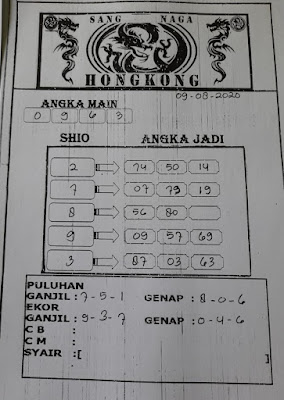 SANG NAGA
HONGKONG
09-08-2020
ANGKA MAIN
0 9 6 3
SHIO ANGKA JADI
2 74 50 14
7 07 79 19
8 56 80
9 09 57 69
3 87 03 63
PULUHAN
GANJIL : 7-5-1 GENAP : 8-0-6
EKOR
GANJIL : 9-3-7 GENAP : 0-4-6
C B :
C M :
SYAIR :[ ]